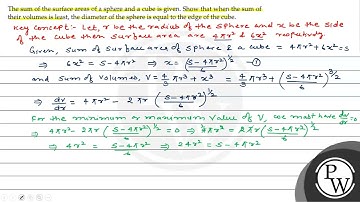 The sum of the surface areas of a sphere and a cube is given. Show that when the sum of
their volumes is least, the diameter of the sphere is equal to the edge of the cube.
Key concept - Let, r be the radius of the sphere and x be the side
of the cube then surface area are 4πr² & 6x² respectively
Given, sum of surface area of sphere & a cube = 4πr²+6x²=S
⇒ 6x² = S-4πr² ⇒ x = (S-4πr²/6)^1/2 —①
and sum of Volumes, V = 4/3 πr³ + x³ = 4/3 πr³ + (S-4πr²/6)^3/2
⇒ dv/dr = 4πr² - 2πr (S-4πr²/6)^1/2
For the minimum or maximum value of V, we must have dv/dr=0
⇒ 4πr² - 2πr (S-4πr²/6)^1/2 = 0 ⇒ 4πr² = 2πr (S-4πr²/6)^1/2
⇒ 4r² = S-4πr²/6 ⇒ 24r² = S-4πr²
PW